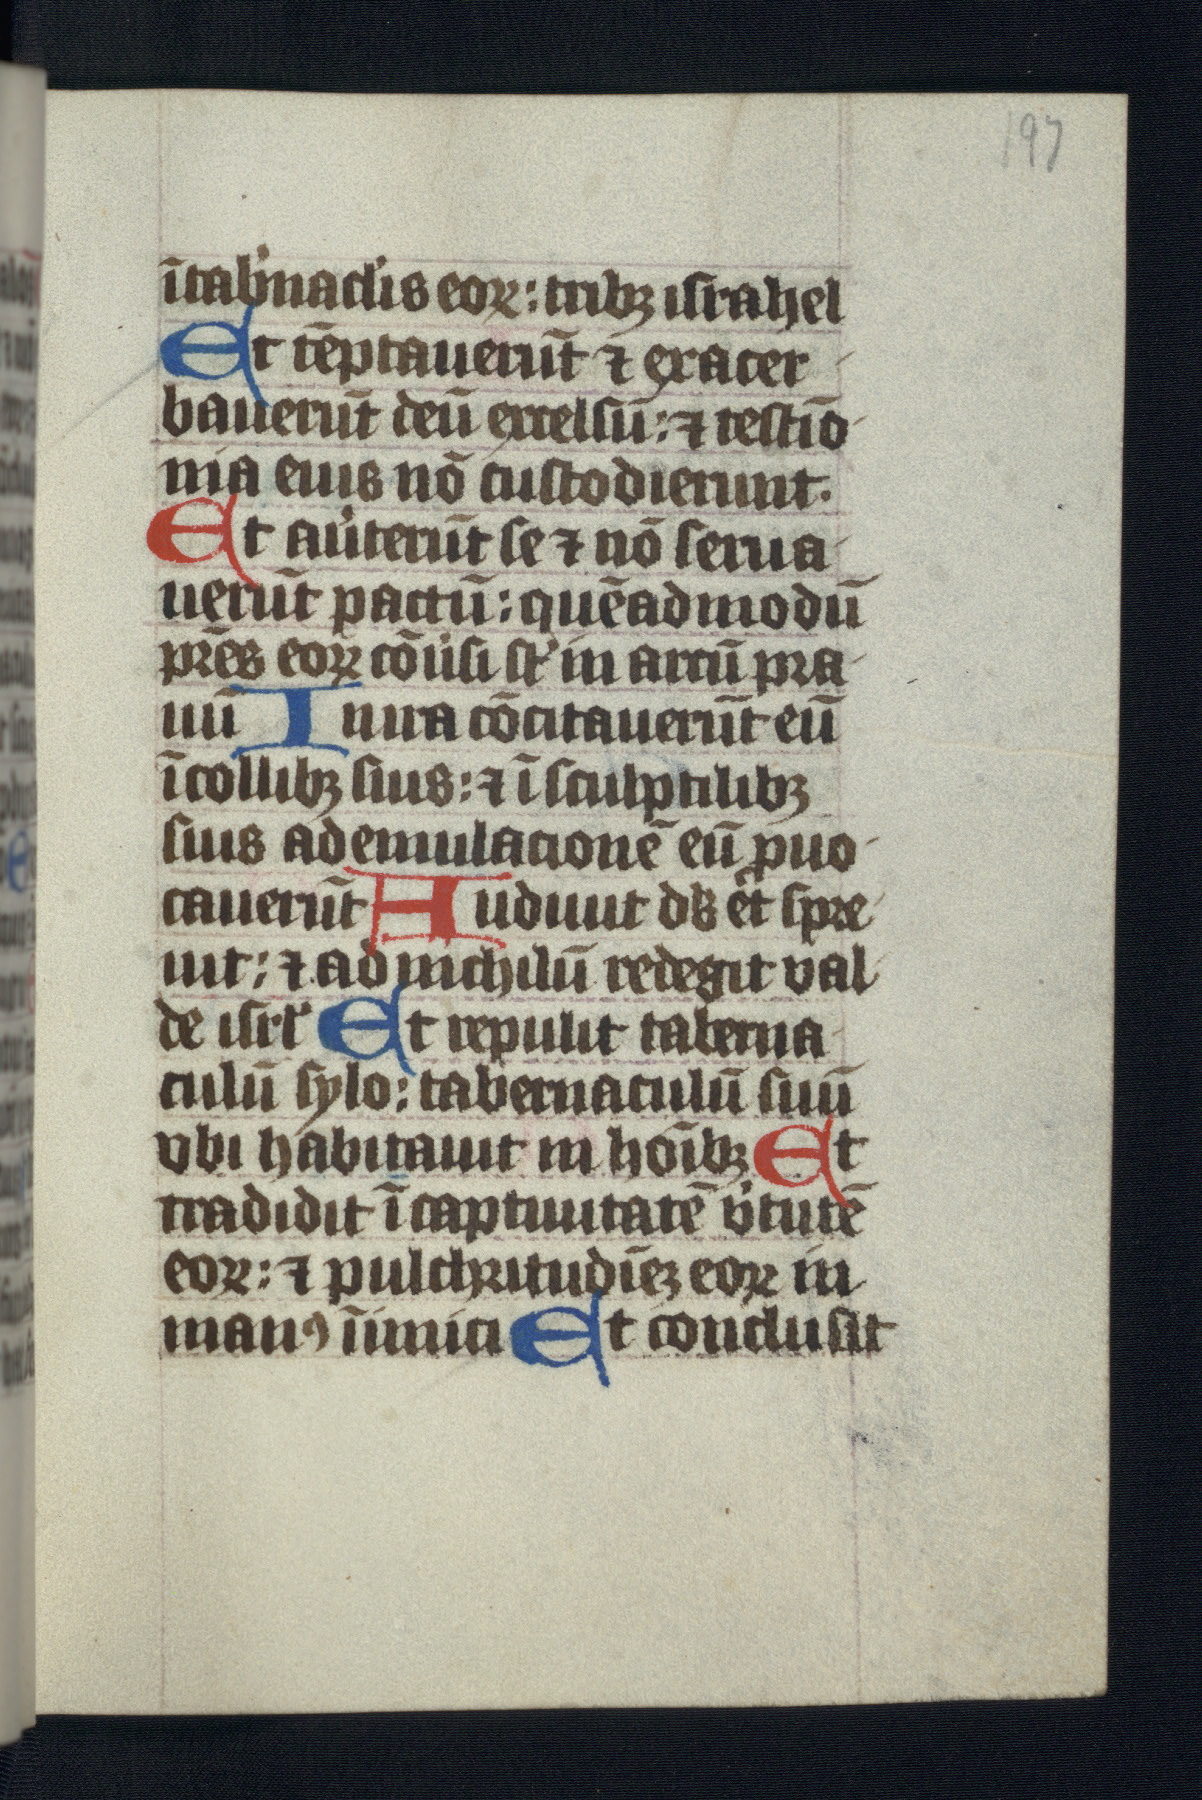 197
ītab'nacl'is eoꝝ: tribꝫ israhel
Et tēptauerūt ⁊ exacer
bauerūt deū excelsū: ⁊ testiō
nia eius nō custodierunt.
Et au'terūt se ⁊ nō serua
uerūt pactū: quēadmodū
pr̄es eoꝝ cōu'si st' in arcū pra
uū In ira cōcitauerūt eū
ī collibꝫ suis: ⁊ ī sculptilibꝫ
suis ad emulacionē eū ꝓuo
cauerūt Audiuit ds̄ et spre
uit: ⁊ ad nichilū redegit val
de isrl' Et repulit taberna
culū sylo: tabernaculū suū
vbi habitauit in hoībꝫ Et
tradidit ī captiuitatē v'tutē
eoꝝ: ⁊ pulchritudīeꝫ eoꝝ in
manꝰ īimici Et conclusit